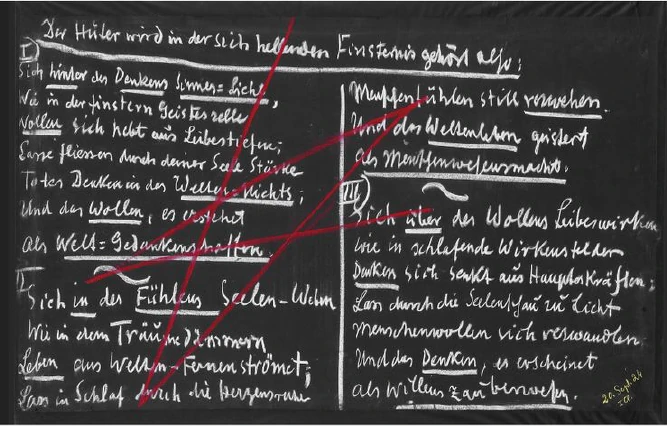 Der Hüter wird in der sich hellenden Finsternis gehört also:
I
Sieh hinter des Denkens Sinnes=Licht,
Wie in der finstern Geisteszelle
Wollen sich hebt aus Leibestiefen;
Lasse fliessen durch deiner Seele Stärke
Totes Denken in das Welten=Nichts;
Und das Wollen, es erstehet
als Welt=Gedankenschaffen.
II
Sieh in des Fühlens Seelen-Weben
Wie in dem Träumedämmern
Leben aus Welten-Fernen strömt;
Lass in Schlaf durch die Herzensruhe
Menschenfühlen still verwehen.
Und das Weltenleben geistert
Als Menschenwesensmacht.
III
Sieh über des Wollens Leibeswirken
Wie in schlafende Wirkensfelder
Denken sich senkt aus Haupteskräften;
Lass durch die Seelenschau zu Licht
Menschenwollen sich verwandeln.
Und das Denken, es erscheinet
als Willenszauberwesen.
20. Sept 24